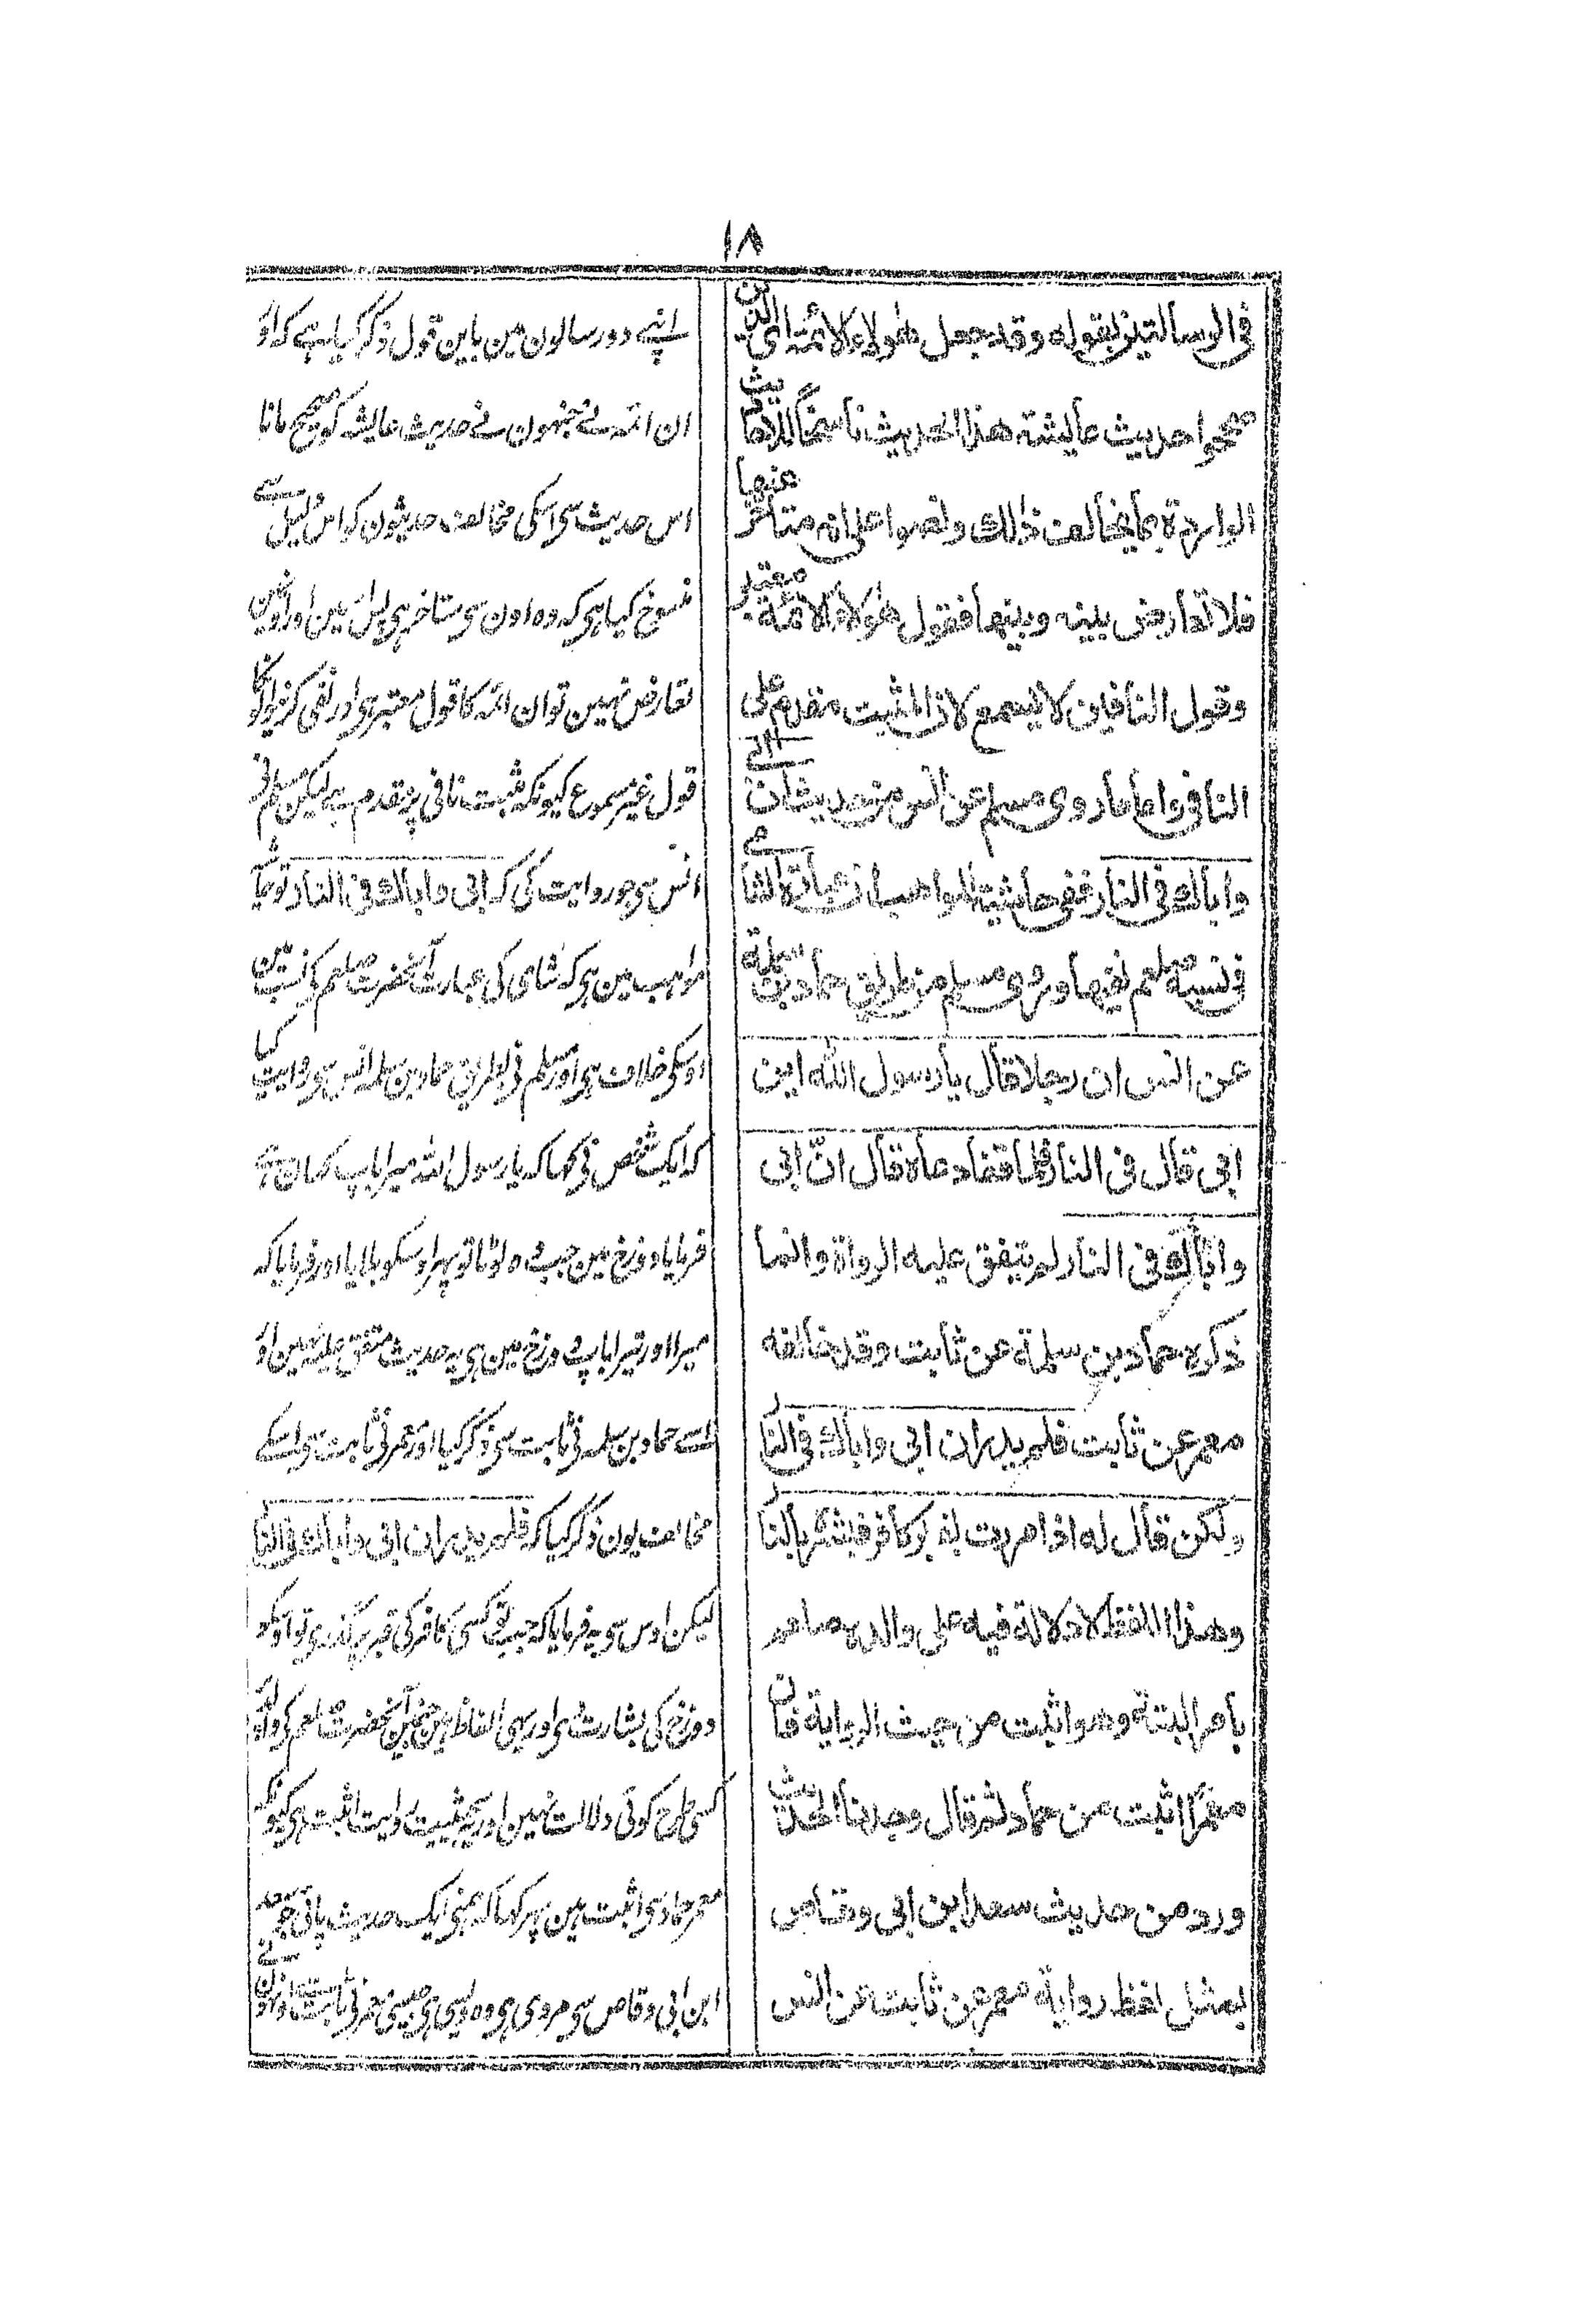 ١٨
فی الرسالتین بقوله وقد جعل هؤلاء الائمة ای الذین
صححوا حدیث عایشة هذا الحدیث ناسخا للاحادیث
الواردة بما یخالف ذلك ونصوا علی انه متأخر عنها
فلا تعارض بینه وبینها فقول هؤلاء الائمة معتبر
وقول النافین لا یسمع لان المثبت مقدم علی
النافی واما ما روی مسلم عن انس من حدیث ان ابی
واباك فی النار ففی حاشیة المواهب ان عبارة الشامی
فی نسبه صلعم نفیها وروی مسلم من طریق حماد بن سلمة
عن انس ان رجلا قال یا رسول الله این
ابی قال فی النار فلما قفا دعاه قال انّ ابی
واباك فی النار لم یتفق علیه الرواة وانما
ذكره حماد بن سلمة عن ثابت وقد خالفه
معمر عن ثابت فلم یذكر ان ابی واباك فی النار
ولكن قال له اذا مررت بقبر كافر فبشره بالنار
وهذا اللفظ لا دلالة فیه علی والده صلعم
بامر البتة وهو اثبت من حیث الروایة فان
معمرا اثبت من حماد ثم قال وجدنا الحدیث
ورد من حدیث سعد ابن ابی وقاص
بمثل لفظ روایة معمر عن ثابت عن انس
اپنے دو رسالون مین باین قول ذکر کیا ہے کہ اور
ان ائمہ نے جنہون نے حدیث عایشہ کو صحیح مانا
اس حدیث سی اسکی مخالف حدیثون کو اس دلیل سے
منسوخ کیا ہی کہ وہ اون سی متاخر ہی پس اسمین اور اونمین
تعارض نہین تو ان ائمہ کا قول معتبر ہی اور نفی کرنیوالونکا
قول غیر مسموع کیونکہ مثبت نافی پر مقدم ہے لیکن مسلم نی
انس سی جو روایت کی کہ ابی واباك فی النار تو حاشیہ
مواہب مین ہی کہ شامی کی عبارت آنحضرت صلعم کی نسب مین
اوسکی خلاف ہی اور مسلم نی بطریق حماد بن سلمہ انس سی روایت کیا
کہ ایک شخص نی کہا کہ یا رسول اللہ میرا باپ کہان ہے
فرمایا دوزخ مین جب وہ لوٹا تو پہر اوسکو بلایا اور فرمایا کہ
میرا اور تیرا باپ دوزخ مین ہی یہ حدیث متفق علیہ نہین اور
اسے حماد بن سلمہ نی ثابت سی ذکر کیا اور معمر نی ثابت سی اسکے
مخالف یون ذکر کیا کہ فلم یذکر ان ابی واباك فی النار
لیکن اوس سی یہ فرمایا کہ جب تو کسی کافر کی قبر پر گذری تو اوسکو
دوزخ کی بشارت دی اور یہی الفاظ ہین جنمین آنحضرت صلعم کی والد پر
کسی طرح کوئی دلالت نہین اور یہ بحیثیت روایت اثبت ہی کیونکہ
معمر حماد سی اثبت ہین پہر کہا کہ ہمنی ایک حدیث پائی جو سعد
ابن ابی وقاص سی مروی ہی وہ ویسی ہی جیسی معمر نی ثابت اور اون نے